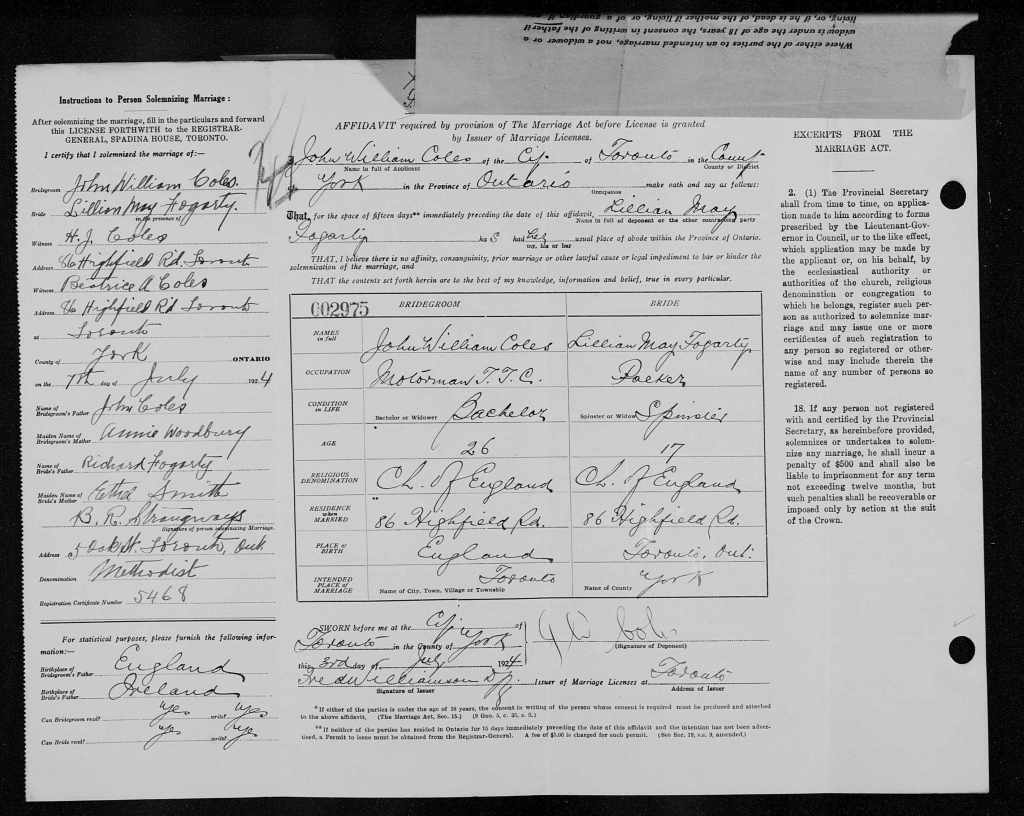 Where either of the parties to an intended marriage, not a widower or a
widow is under the age of 18 years, the consent in writing of the father if
living, or, if he is dead, of the mother if living, or of a guardian if
Instructions to Person Solemnizing Marriage:
After solemnizing the marriage, fill in the particulars and forward
this LICENSE FORTHWITH to the REGISTRAR-
GENERAL, SPADINA HOUSE, TORONTO.
I certify that I solemnized the marriage of:—
Bridegroom John William Coles.
Bride Lillian May Fogarty.
in the presence of
Witness H. J. Coles
Address 86 Highfield Rd. Toronto
Witness Beatrice A Coles
Address 86 Highfield Rd Toronto
at Toronto
County of York ONTARIO
on the 7th day of July 1924
Name of Bridegroom's Father John Coles
Maiden Name of Bridegroom's Mother Annie Woodbury
Name of Bride's Father Richard Fogarty
Maiden Name of Bride's Mother Smith
B. R. Strangways
Signature of person solemnizing Marriage.
Address 5 Oak St. Toronto, Ont.
Denomination Methodist
Registration Certificate Number 5468
For statistical purposes, please furnish the following infor-
mation:—
Birthplace of Bridegroom's Father England
Birthplace of Bride's Father Ireland
Can Bridegroom read? yes write? yes
Can Bride read? yes write? yes
AFFIDAVIT required by provision of The Marriage Act before License is granted
by Issuer of Marriage Licenses.
I, John William Coles of the City of Toronto in the County
Name in full of Applicant County or District
York in the Province of Ontario make oath and say as follows:
Occupation
That, for the space of fifteen days** immediately preceding the date of this affidavit, Lillian May
Name in full of deponent or the other contracting party
Fogarty has had her usual place of abode within the Province of Ontario.
my, his or her
THAT, I believe there is no affinity, consanguinity, prior marriage or other lawful cause or legal impediment to bar or hinder the
solemnization of the marriage, and
THAT the contents set forth herein are to the best of my knowledge, information and belief, true in every particular.
002975 BRIDEGROOM BRIDE
NAMES in full John William Coles Lillian May Fogarty
OCCUPATION Motorman T.T.C. Packer
CONDITION in LIFE Bachelor or Widower Bachelor Spinster or Widow Spinster
AGE 26 17
RELIGIOUS DENOMINATION Ch. of England Ch. of England
RESIDENCE when MARRIED 86 Highfield Rd. 86 Highfield Rd.
PLACE of BIRTH England Toronto, Ont.
INTENDED PLACE of MARRIAGE Name of City, Town, Village or Township Toronto Name of County York
SWORN before me at the City of
Toronto in the County of York
this 3rd day of July 1924
J W Coles
(Signature of Deponent)
Fred Williamson Issuer of Marriage Licenses at Toronto
Signature of Issuer Address of Issuer
* If either of the parties is under the age of 18 years, the consent in writing of the person whose consent is required must be produced and attached
to the above affidavit. (The Marriage Act, Sec. 15.) (9 Geo. 5, c. 35, s. 3.)
** If neither of the parties has resided in Ontario for 15 days immediately preceding the date of this affidavit and the intention has not been adver-
tised, a Permit to issue must be obtained from the Registrar-General. A fee of $5.00 is charged for such permit. (See Sec. 19, s.s. 9, amended.)
EXCERPTS FROM THE
MARRIAGE ACT.
2. (1) The Provincial Secretary
shall from time to time, on applica-
tion made to him according to forms
prescribed by the Lieutenant-Gov-
ernor in Council, or to the like effect,
which application may be made by
the applicant or, on his behalf, by
the ecclesiastical authority or
authorities of the church, religious
denomination or congregation to
which he belongs, register such per-
son as authorized to solemnize mar-
riage and may issue one or more
certificates of such registration to
any person so registered or other-
wise and may include therein the
name of any number of persons so
registered.
18. If any person not registered
with and certified by the Provincial
Secretary, as hereinbefore provided,
solemnizes or undertakes to solem-
nize any marriage, he shall incur a
penalty of $500 and shall also be
liable to imprisonment for any term
not exceeding twelve months, but
such penalties shall be recoverable or
imposed only by action at the suit
of the Crown.